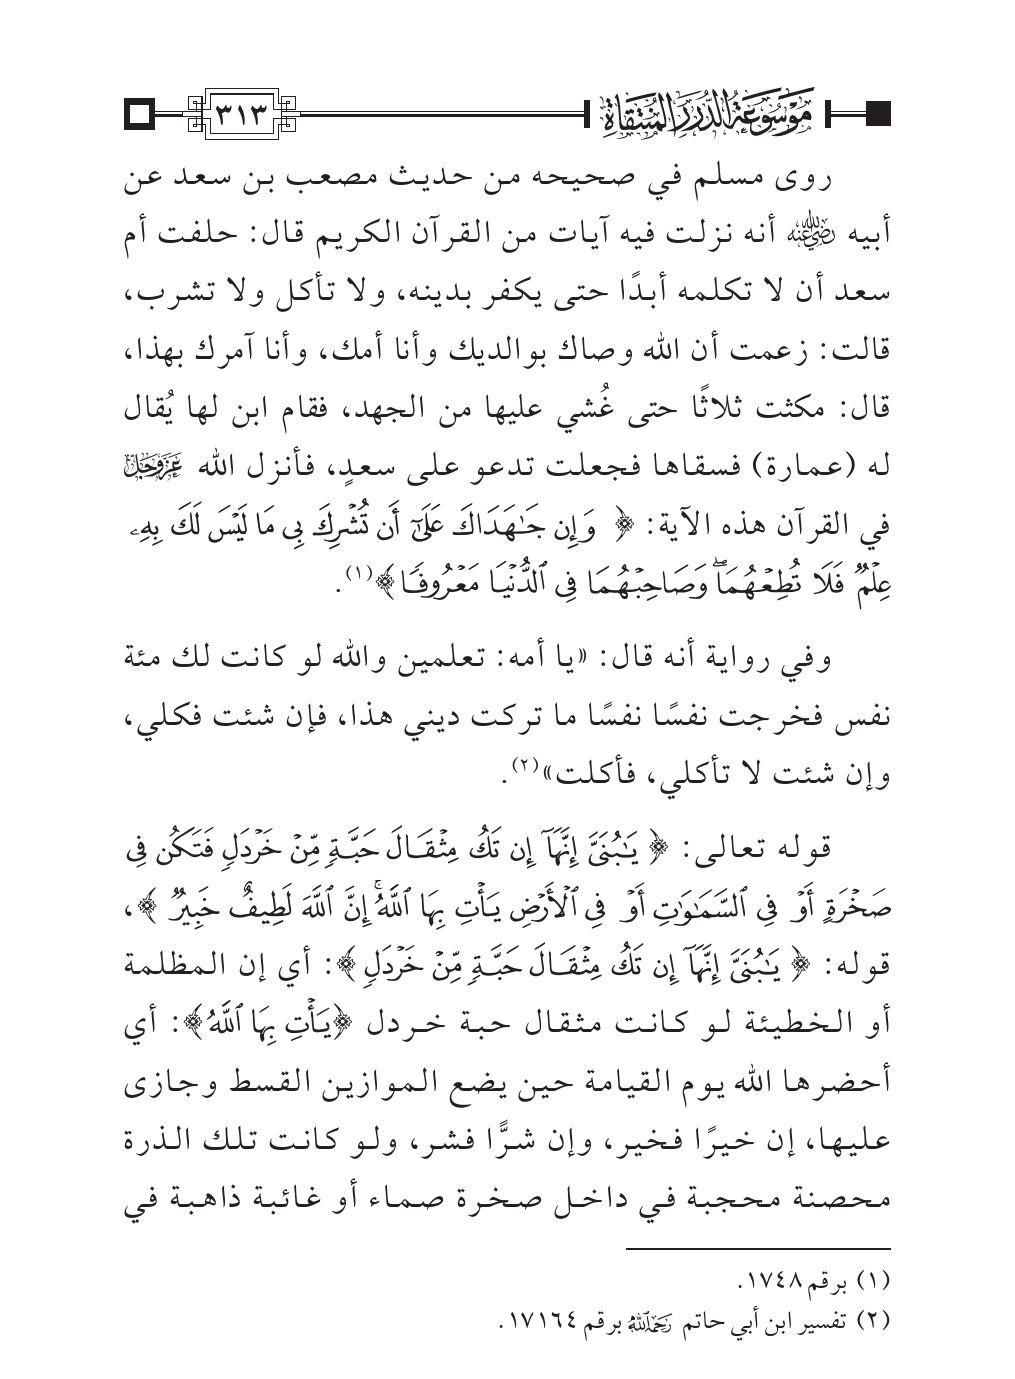 موسوعة الدرر المنتقاة ٣١٣
روى مسلم في صحيحه من حديث مصعب بن سعد عن
أبيه رضي الله عنه أنه نزلت فيه آيات من القرآن الكريم قال: حلفت أم
سعد أن لا تكلمه أبدًا حتى يكفر بدينه، ولا تأكل ولا تشرب،
قالت: زعمت أن الله وصاك بوالديك وأنا أمك، وأنا آمرك بهذا،
قال: مكثت ثلاثًا حتى غُشي عليها من الجهد، فقام ابن لها يُقال
له (عمارة) فسقاها فجعلت تدعو على سعدٍ، فأنزل الله عز وجل
في القرآن هذه الآية: ﴿ وَإِن جَـٰهَدَاكَ عَلَىٰٓ أَن تُشْرِكَ بِى مَا لَيْسَ لَكَ بِهِۦ
عِلْمٌ فَلَا تُطِعْهُمَا ۖ وَصَاحِبْهُمَا فِى ٱلدُّنْيَا مَعْرُوفًا ﴾(١).
وفي رواية أنه قال: «يا أمه: تعلمين والله لو كانت لك مئة
نفس فخرجت نفسًا نفسًا ما تركت ديني هذا، فإن شئت فكلي،
وإن شئت لا تأكلي، فأكلت»(٢).
قوله تعالى: ﴿ يَـٰبُنَىَّ إِنَّهَآ إِن تَكُ مِثْقَالَ حَبَّةٍ مِّنْ خَرْدَلٍ فَتَكُن فِى
صَخْرَةٍ أَوْ فِى ٱلسَّمَـٰوَٰتِ أَوْ فِى ٱلْأَرْضِ يَأْتِ بِهَا ٱللَّهُ ۚ إِنَّ ٱللَّهَ لَطِيفٌ خَبِيرٌ ﴾،
قوله: ﴿ يَـٰبُنَىَّ إِنَّهَآ إِن تَكُ مِثْقَالَ حَبَّةٍ مِّنْ خَرْدَلٍ ﴾: أي إن المظلمة
أو الخطيئة لو كانت مثقال حبة خردل ﴿يَأْتِ بِهَا ٱللَّهُ﴾: أي
أحضرها الله يوم القيامة حين يضع الموازين القسط وجازى
عليها، إن خيرًا فخير، وإن شرًّا فشر، ولو كانت تلك الذرة
محصنة محجبة في داخل صخرة صماء أو غائبة ذاهبة في
(١) برقم ١٧٤٨.
(٢) تفسير ابن أبي حاتم رحمه الله برقم ١٧١٦٤.